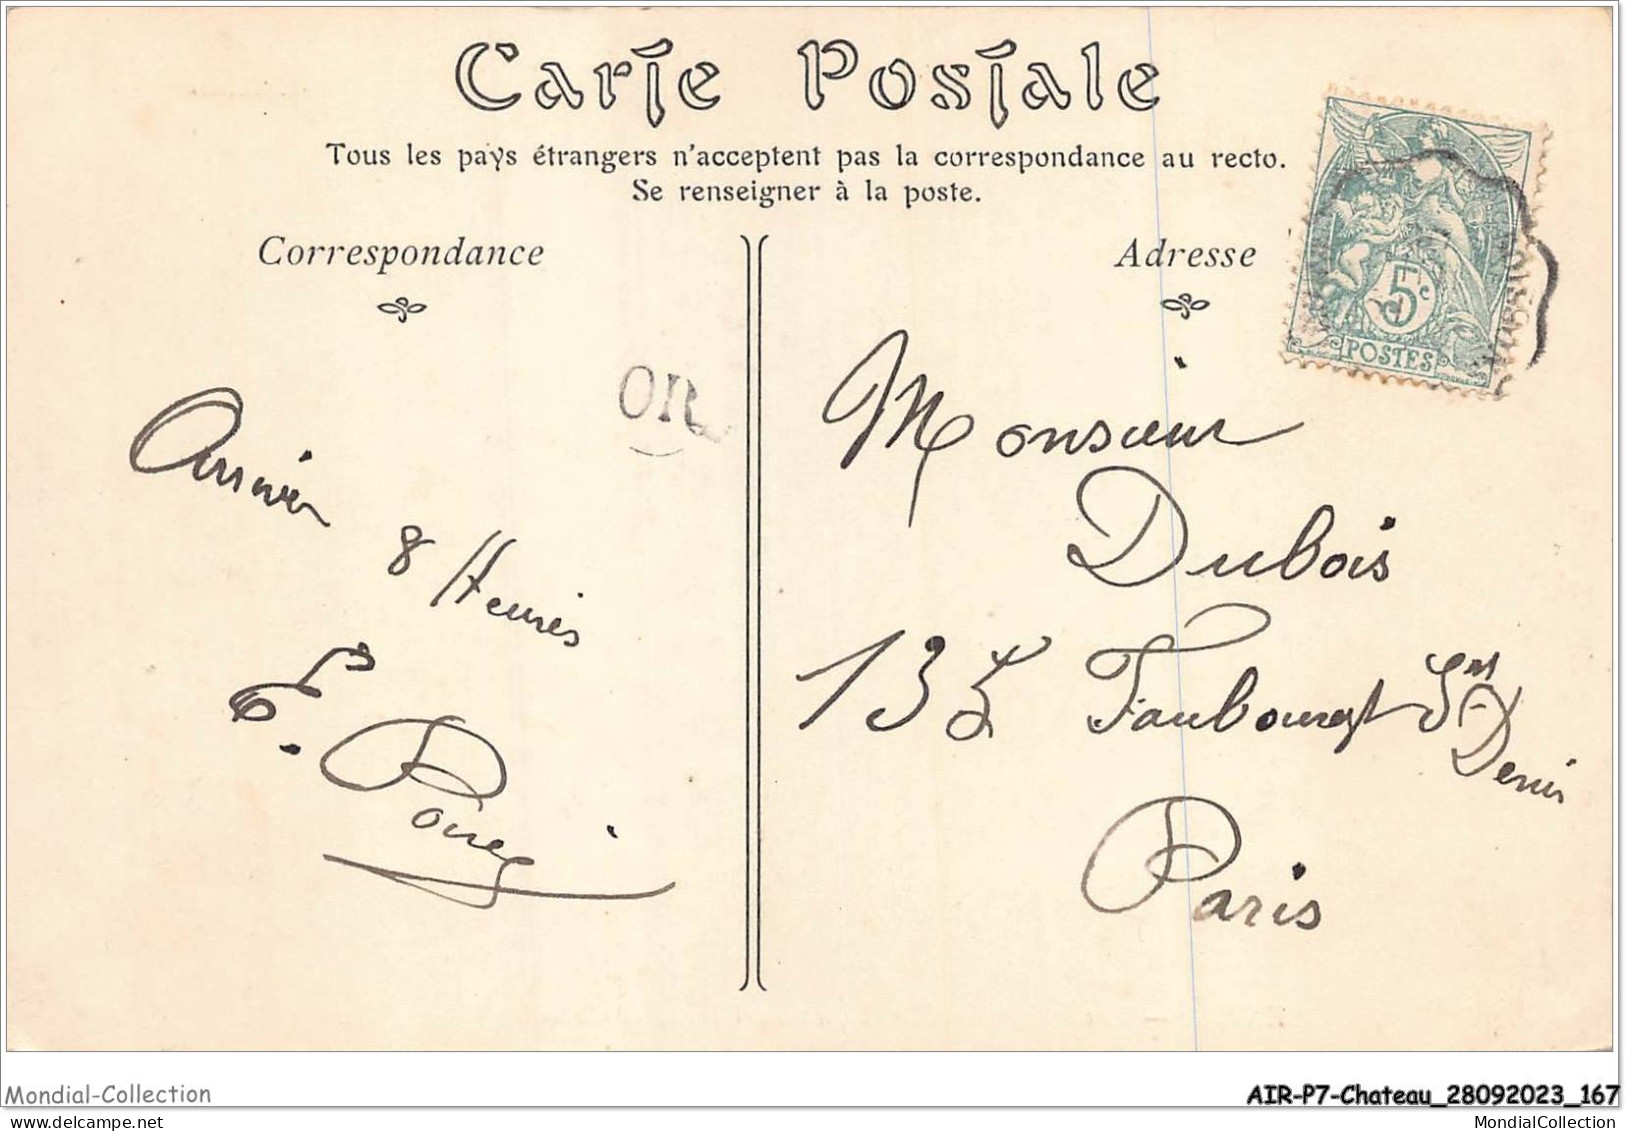 Carte Postale
Tous les pays étrangers n'acceptent pas la correspondance au recto.
Se renseigner à la poste.
Correspondance
Adresse
5c
POSTES
OR
Arriver
8 Heures
E.
Monsieur
Dubois
135 Faubourg St Denis
Paris
Mondial-Collection
AIR-P7-Chateau_28092023_167
MondialCollection